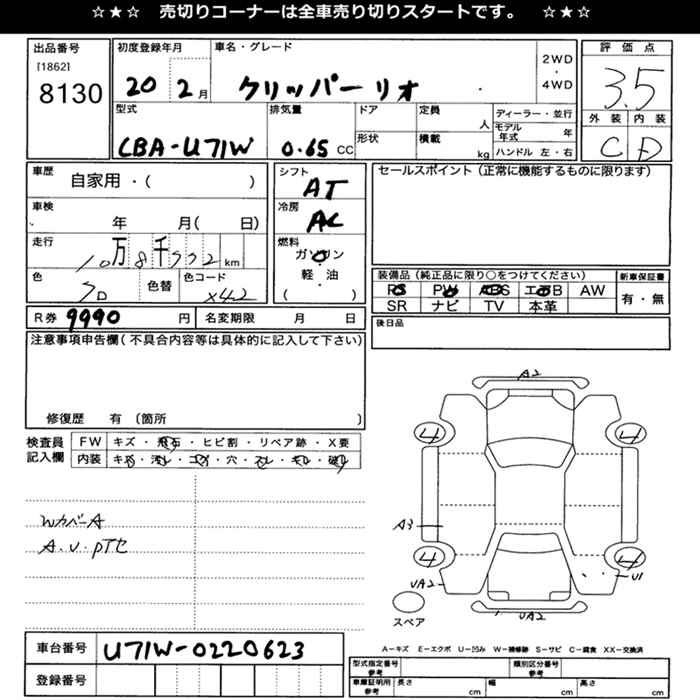 ☆★☆ 売切りコーナーは全車売り切りスタートです。 ☆★☆
出品番号
[1862]
8130
初度登録年月
20 2月
車名・グレード
クリッパーリオ
2WD
・
4WD
評価点
3.5
外装 内装
C D
型式
CBA-U71W
排気量
0.65 CC
ドア
形状
定員
人
積載
kg
ディーラー・並行
モデル年式 年
ハンドル 左・右
車歴
自家用・( )
車検
年 月( 日)
走行
10万8千552km
色
色替
色コード
X42
R券 9990 円
名変期限 月 日
シフト
AT
冷房
AC
燃料
ガソリン
軽・油
( )
セールスポイント(正常に機能するものに限ります)
装備品(純正品に限り○をつけてください)
PS PW ABS エアB AW
SR ナビ TV 本革
新車保証書
有・無
後日品
注意事項申告欄(不具合内容等は具体的に記入して下さい)
修復歴 有 (箇所 )
検査員
記入欄
FW キズ・飛石・ヒビ割・リペア跡・X要
内装 キズ・汚れ・コゲ・穴・スレ・キレ・破れ
WカバーA
A.U.PTセ
A2
4 4
A3
4 4
UA2
U1
UA2
スペア
A−キズ E−エクボ U−凹み W−補修跡 S−サビ C−腐食 XX−交換済
車台番号 U71W-0220623
登録番号
型式指定番号
参考
類別区分番号
参考
車庫証明用
参考
長さ cm
幅 cm
高さ cm